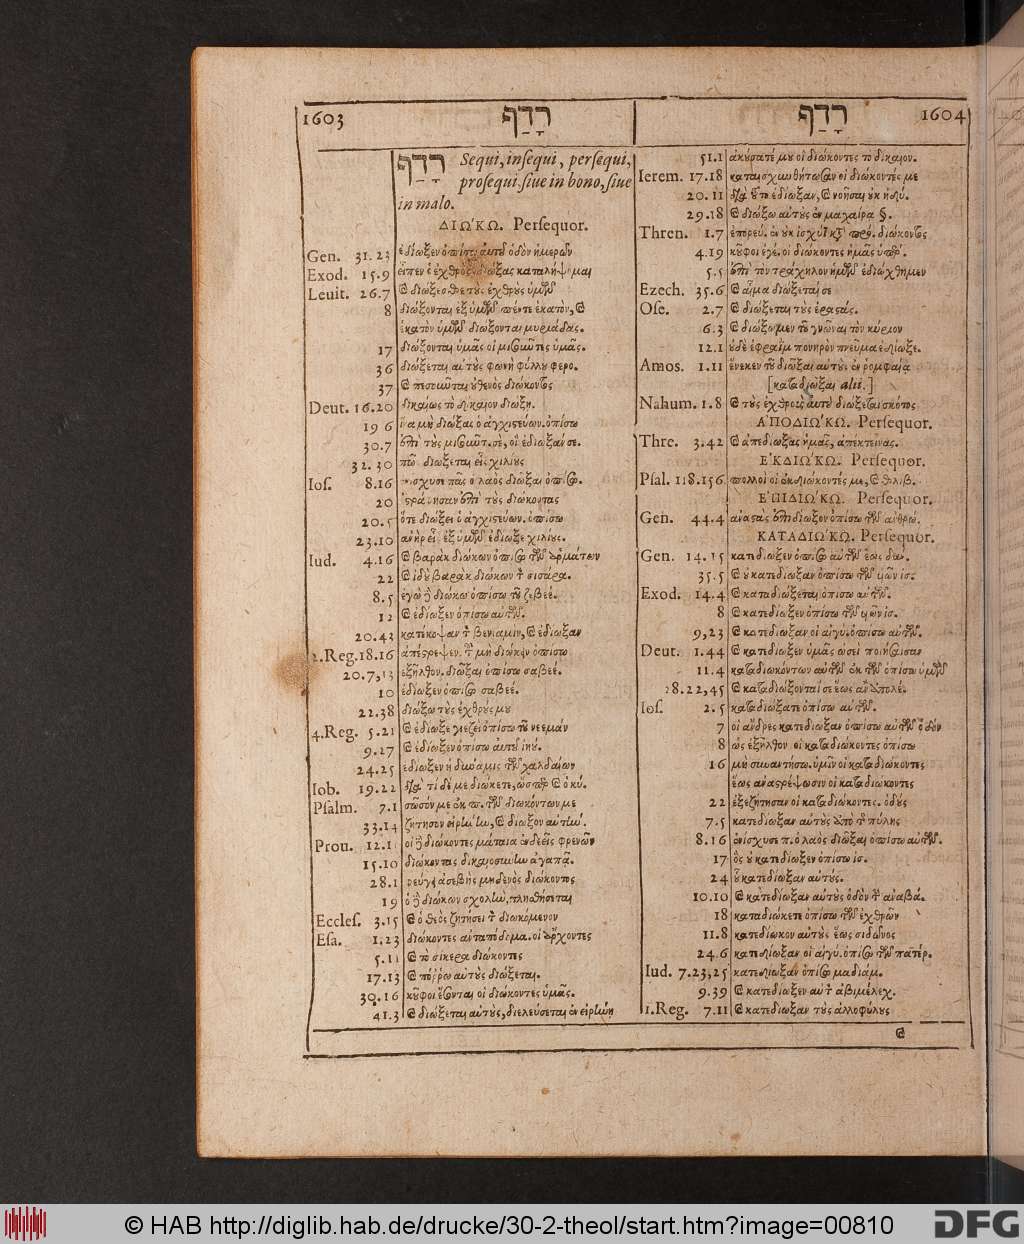 1603 רָדַף
רָדַף Sequi, insequi, persequi,
prosequi siue in bono, siue
in malo.
ΔΙΩ'ΚΩ. Persequor.
Gen. 31.23 ἐδίωξεν ὀπίσω αὐτοῦ ὁδὸν ἡμερῶν
Exod. 15.9 εἶπεν ὁ ἐχθρὸς διώξας καταλήψομαι
Leuit. 26.7 καὶ διώξεσθε τοὺς ἐχθροὺς ὑμῶν
8 διώξονται ἐξ ὑμῶν πέντε ἑκατὸν, καὶ
ἑκατὸν ὑμῶν διώξονται μυριάδας.
17 διώξονται ὑμᾶς οἱ μισοῦντες ὑμᾶς.
36 διώξεται αὐτοὺς φωνὴ φύλλου φερο.
37 καὶ πεσοῦνται οὐθενὸς διώκοντος
Deut. 16.20 δικαίως τὸ δίκαιον διώξῃ.
19 6 ἵνα μὴ διώξας ὁ ἀγχιστεύων. ὀπίσω
30.7 ἐπὶ τοὺς μισοῦντ. σὲ, οἳ ἐδίωξάν σε.
32.30 πῶς διώξεται εἷς χιλίους
Ios. 8.16 πᾶς ὁ λαὸς διῶξαι ὀπίσω.
20 ἐπὶ τοὺς διώκοντας
20.5 ὅτε διώξει ὁ ἀγχιστεύων. ὀπίσω
23.10 ἀνὴρ εἷς ἐξ ὑμῶν ἐδίωξε χιλίους.
Iud. 4.16 καὶ βαρὰκ διώκων ὀπίσω τῶν ἁρμάτων
22 καὶ ἰδοὺ βαρὰκ διώκων τὸν σισάρα.
8.5 ἐγὼ διώκω ὀπίσω τοῦ ζεβεέ.
12 καὶ ἐδίωξεν ὀπίσω αὐτῶν.
20.43 κατέκοψαν τὸν βενιαμὶν, καὶ ἐδίωξαν
2.Reg. 18.16 ἀπέστρεψεν. τοῦ μὴ διώκειν ὀπίσω
20.7,13 ἐξῆλθον. διῶξαι ὀπίσω σαβεέ.
10 ἐδίωξεν ὀπίσω σαβεέ.
22.38 διώξω τοὺς ἐχθρούς μου
4.Reg. 5.21 καὶ ἐδίωξε γιεζεὶ ὀπίσω τοῦ νεεμάν
9.27 καὶ ἐδίωξεν ὀπίσω αὐτοῦ ἰηού.
24.25 ἐδίωξεν ἡ δύναμις τῶν χαλδαίων
Iob. 19.22 διὰ τί δέ με διώκετε, ὥσπερ καὶ ὁ κύ.
Psalm. 7.1 σῶσόν με ἐκ π. τῶν διωκόντων με
33.14 ζήτησον εἰρήνην, καὶ δίωξον αὐτήν.
Prou. 12.1 οἱ διώκοντες μάταια ἐνδεεῖς φρενῶν
15.10 διώκοντας δικαιοσύνην ἀγαπᾷ.
28.1 φεύγει ἀσεβὴς μηδενὸς διώκοντος
19 ὁ διώκων σχολὴν, πλησθήσεται
Eccles. 3.15 καὶ ὁ θεὸς ζητήσει τὸν διωκόμενον
Esa. 1,23 διώκοντες ἀνταπόδομα. οἱ ἄρχοντες
5.11 καὶ τὸ σίκερα διώκοντες
17.13 καὶ πόρρω αὐτοὺς διώξεται.
30.16 κοῦφοι ἔσονται οἱ διώκοντες ὑμᾶς.
41.3 καὶ διώξεται αὐτοὺς, διελεύσεται ἐν εἰρήνῃ
רָדַף 1604
51.1 ἀκούσατέ μου οἱ διώκοντες τὸ δίκαιον.
Ierem. 17.18 καταισχυνθήτωσαν οἱ διώκοντές με
20.11 διὰ τοῦτο ἐδίωξαν, καὶ νοῆσαι οὐκ ἠδύ.
29.18 καὶ διώξω αὐτοὺς ἐν μαχαίρᾳ §.
Thren. 1.7 ἐπορεύ. ἐν οὐκ ἰσχύϊ κατὰ πρό. διώκοντος
4.19 κοῦφοι ἐγέ. οἱ διώκοντες ἡμᾶς ὑπὲρ.
5.5 ἐπὶ τὸν τράχηλον ἡμῶν ἐδιώχθημεν
Ezech. 35.6 καὶ αἷμα διώξεταί σε
Ose. 2.7 καὶ διώξεται τοὺς ἐραστάς.
6.3 καὶ διώξωμεν τοῦ γνῶναι τὸν κύριον
12.1 ὁ δὲ ἐφραὶμ πονηρὸν πνεῦμα ἐδίωξε.
Amos. 1.11 ἕνεκεν τοῦ διῶξαι αὐτοὺς ἐν ῥομφαίᾳ
[καταδιῶξαι alii.]
Nahum. 1.8 καὶ τοὺς ἐχθροὺς αὐτοῦ διώξεται σκότος
Α'ΠΟΔΙΩ'ΚΩ. Persequor.
Thre. 3.42 καὶ ἀπεδίωξας ἡμᾶς, ἀπέκτεινας.
Ε'ΚΔΙΩ'ΚΩ. Persequor.
Psal. 118.156 πολλοὶ οἱ ἐκδιώκοντές με, καὶ θλίβ.
Ε'ΠΙΔΙΩ'ΚΩ. Persequor.
Gen. 44.4 ἀναστὰς ἐπιδίωξον ὀπίσω τῶν ἀνθρώ.
ΚΑΤΑΔΙΩ'ΚΩ. Persequor.
Gen. 14.15 κατεδίωξεν ὀπίσω αὐτῶν ἕως δάν.
35.5 καὶ οὐ κατεδίωξαν ὀπίσω τῶν υἱῶν ἰσ.
Exod. 14.4 καὶ καταδιώξεται ὀπίσω αὐτῶν.
8 καὶ κατεδίωξεν ὀπίσω τῶν υἱῶν ἰσ.
9,23 καὶ κατεδίωξαν οἱ αἰγύ. ὀπίσω αὐτῶν.
Deut. 1.44 καὶ κατεδίωξεν ὑμᾶς ὡσεὶ ποιήσαισαν
11.4 καταδιωκόντων αὐτῶν ἐκ τῶν ὀπίσω ὑμῶν
28.22,45 καὶ καταδιώξονταί σε ἕως ἂν ἀπολέ.
Ios. 2.5 καταδιώξατε ὀπίσω αὐτῶν.
7 οἱ ἄνδρες κατεδίωξαν ὀπίσω αὐτῶν ὁδὸν
8 ὡς ἐξῆλθον οἱ καταδιώκοντες ὀπίσω
16 μὴ συναντήσω. ὑμῖν οἱ καταδιώκοντες
ἕως ἀναστρέψωσιν οἱ καταδιώκοντες
22 ἐξεζήτησαν οἱ καταδιώκοντες. ὁδοὺς
7.5 κατεδίωξαν αὐτοὺς ἀπὸ τῆς πύλης
8.16 ἐνίσχυσε π. ὁ λαὸς διῶξαι ὀπίσω αὐτῶν.
17 ὃς οὐ κατεδίωξεν ὀπίσω ἰσ.
24 οὗ κατεδίωξαν αὐτούς.
10.10 καὶ κατεδίωξαν αὐτοὺς ὁδὸν τὴν ἀναβά.
18 καταδιώκετε ὀπίσω τῶν ἐχθρῶν
11.8 κατεδίωκον αὐτοὺς ἕως σιδῶνος
24.6 κατεδίωξαν οἱ αἰγύ. ὀπίσω τῶν πατέρ.
Iud. 7.23,25 κατεδίωξαν ὀπίσω μαδιάμ.
9.39 καὶ κατεδίωξεν αὐτὸν ἀβιμέλεχ.
1.Reg. 7.11 καὶ κατεδίωξαν τοὺς ἀλλοφύλους
καὶ
© HAB http://diglib.hab.de/drucke/30-2-theol/start.htm?image=00810
DFG